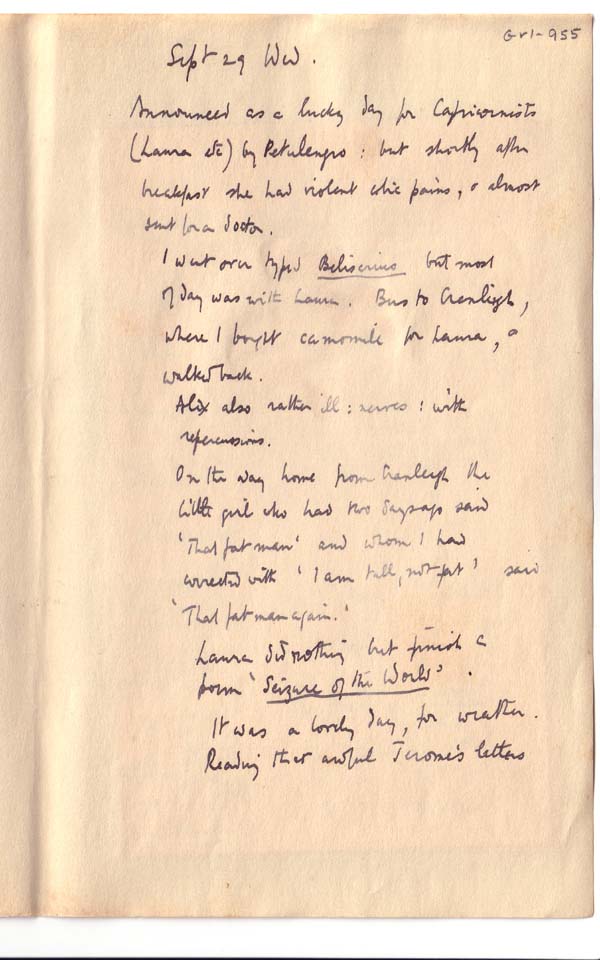 Gr1-955
Sept 29 Wed.
Announced as a lucky day for Capricornists
(Laura etc) by Petulengro : but shortly after
breakfast she had violent colic pains, & almost
sent for a doctor.
I went over typed Belisarius but most
of day was with Laura. Bus to Cranleigh,
where I bought camomile for Laura, &
walked back.
Alix also rather ill : nerves : with
repercussions.
On the way home from Cranleigh the
little girl who had two days ago said
'That fat man' and whom I had
corrected with 'I am tall, not fat' said
'That fat man again.'
Laura did nothing but finish a
poem 'Seizure of the World'.
It was a lovely day, for weather.
Reading that awful Jerome's letters